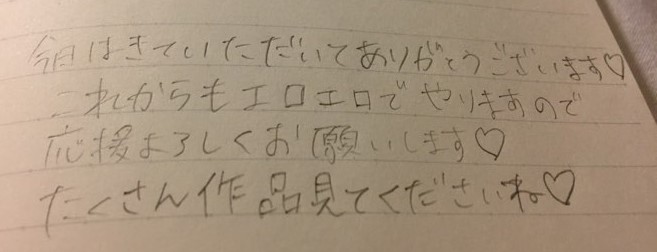 今日はきていただいてありがとうございます♡
これからもエロエロでやりますので
応援よろしくお願いします♡
たくさん作品見てくださいね♡